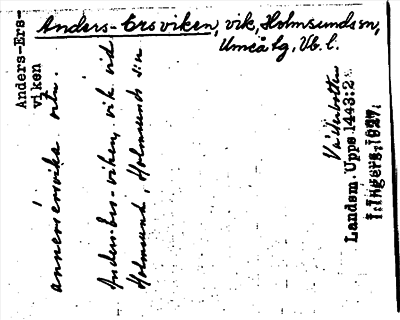 Anders-Ersviken, vik, Holmsunds sn,
Umeå tg, Vb. l.
Anders-Ers-
viken
ånnersersvika
Anders Ers-viken, vik vid
Holmsund, Holmsunds sn
Västerbotten
Landsm. Upps. 1443:2
I. Ingers. 1927.